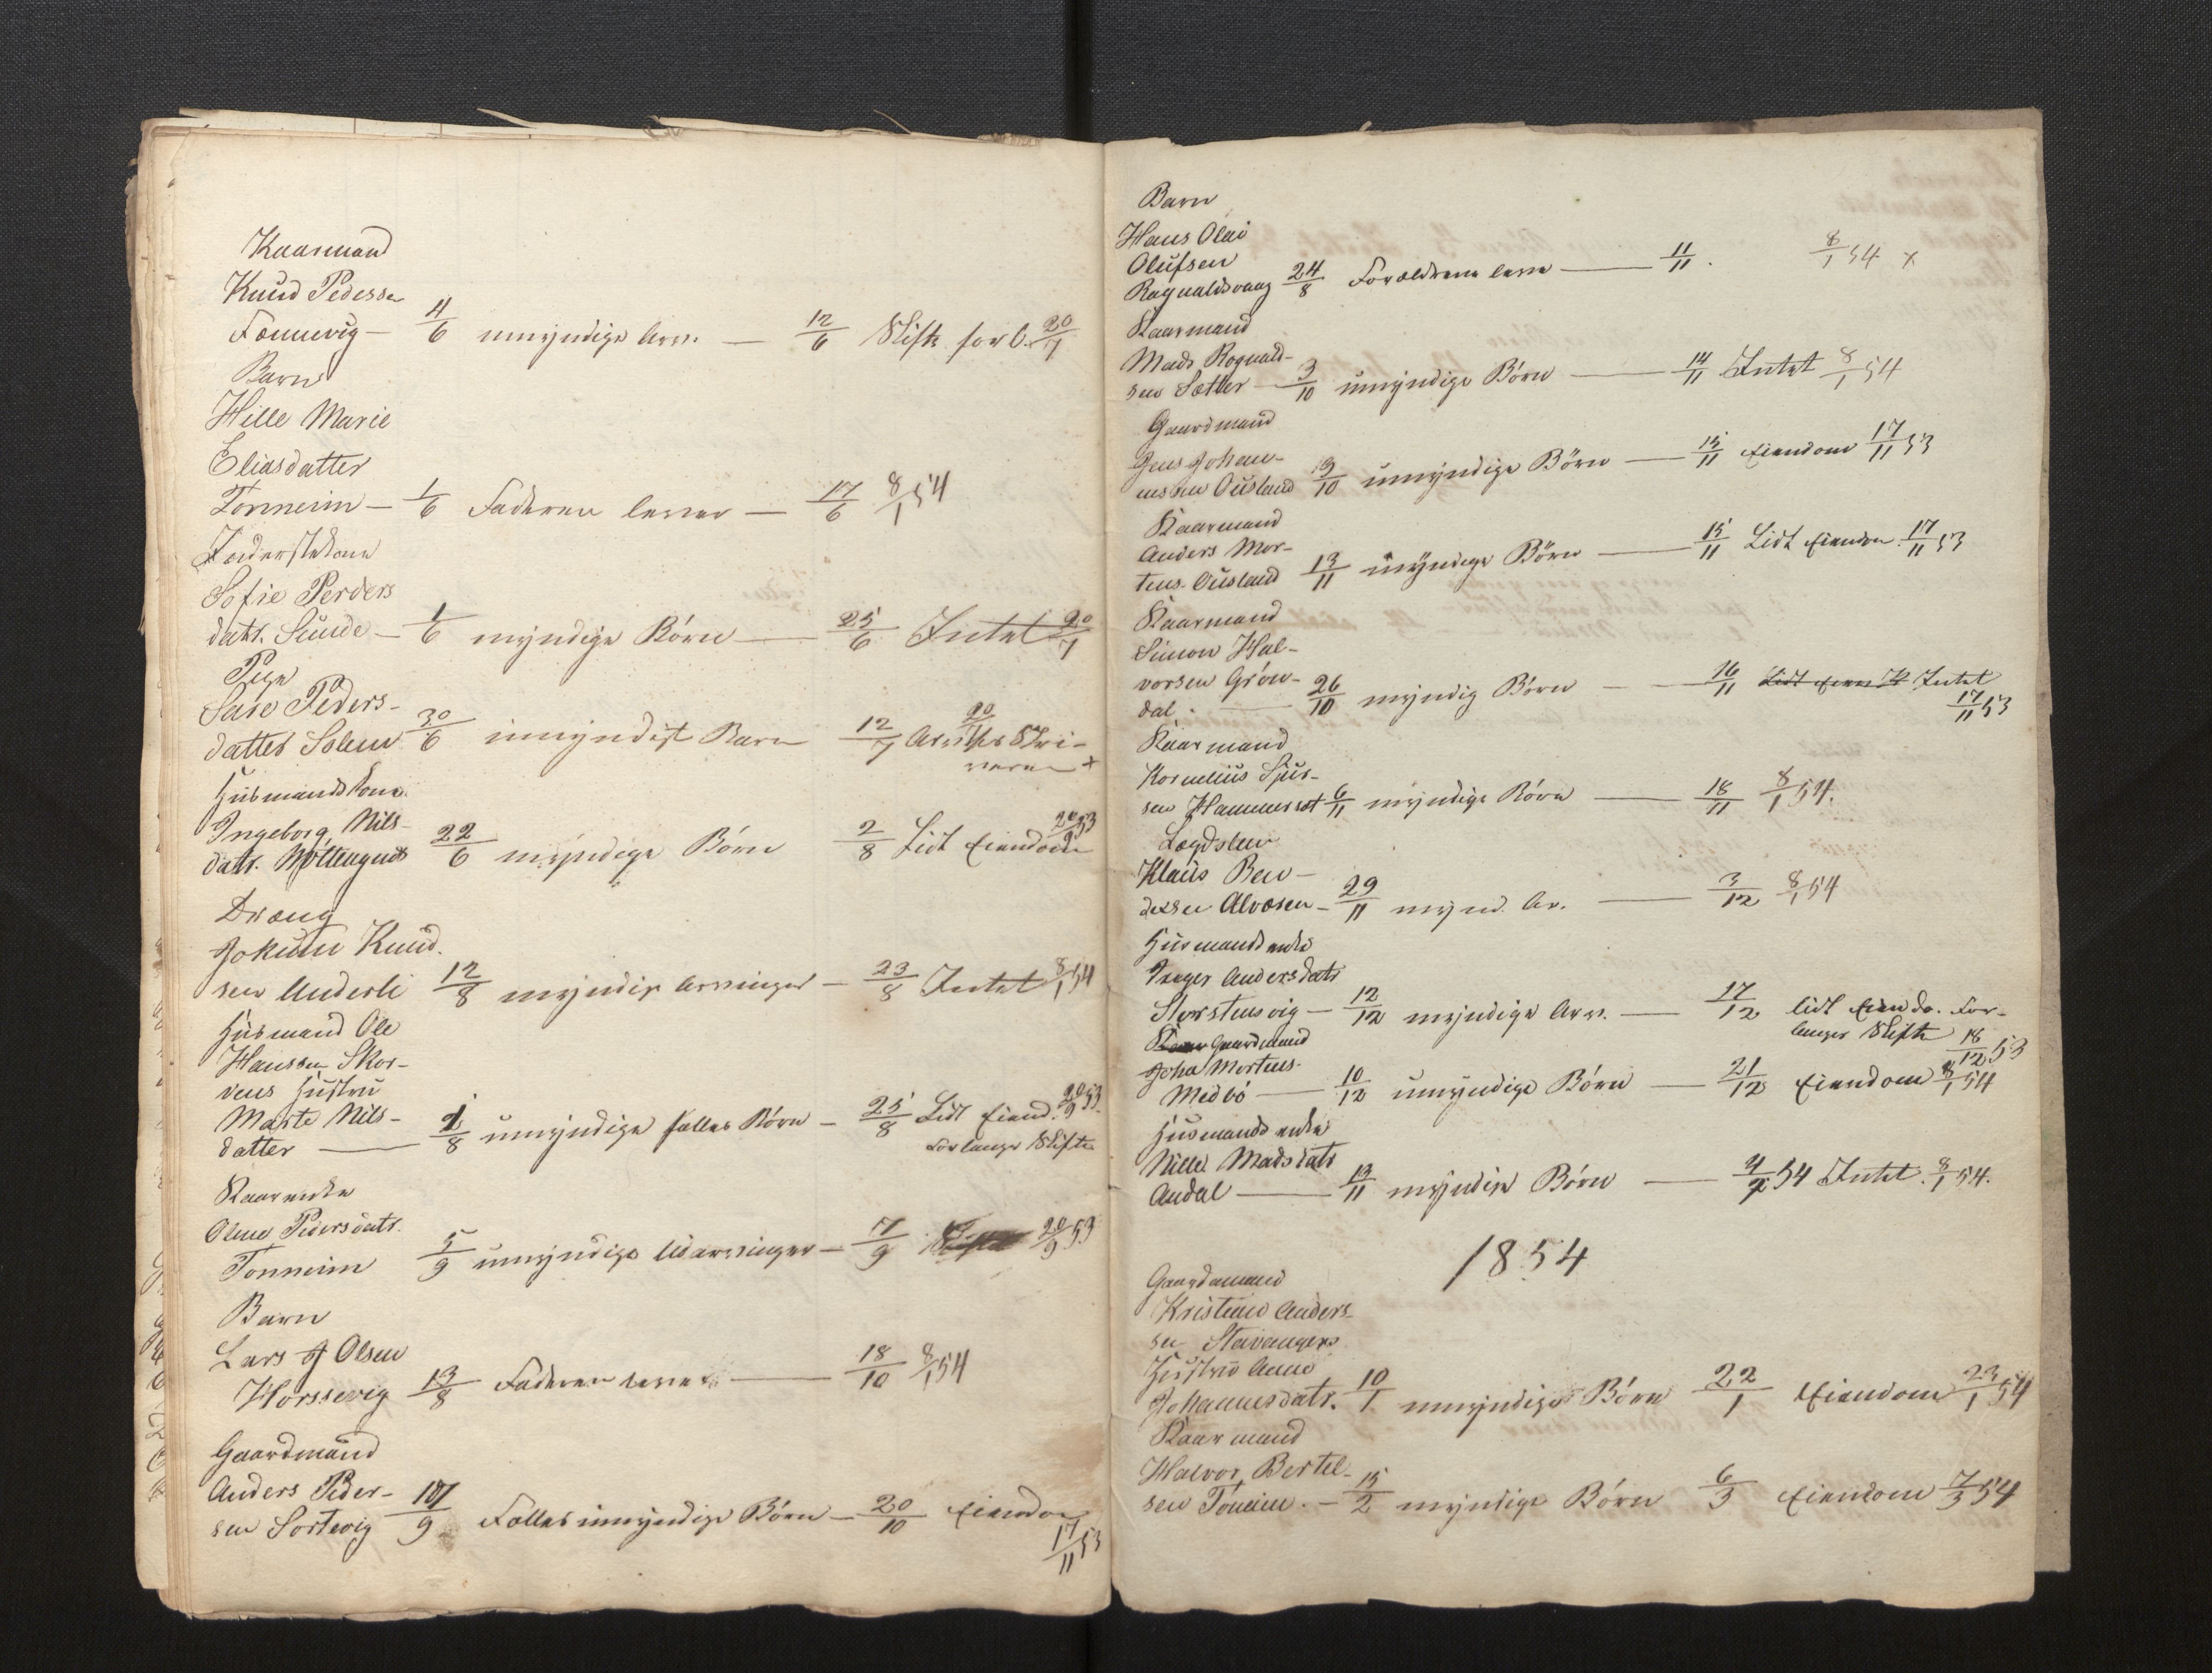 Kaarmand
Knud Pederssen
Fonnevig — 4/6 umyndige Arv. — 12/6 Skifte forl. 20/7
Barn
Hille Marie
Eliasdatter
Tonneim — 1/6 Faderen lever — 17/6 8/1 54
Foderstekone
Sofie Perders
datr. Sunde — 1/6 myndige Børn — 25/6 Intet 20/7
Pige
Peders-
datter Solem 30/6 umyndigt Barn 12/7 20/7
Husmandskone
Ingeborg Nils-
datr. 22/6 myndige Børn 2/8 Lidt Eiendom 20/9 53
Dræng
Jokum Knud-
sen Underli 12/8 myndige Arvinger — 23/8 Intet 8/1 54
Husmand Ole
Hanssen Skor-
vens Hustru
Marte Nils-
datter — 8 umyndige fælles Børn — 25/8 Lidt Eiend. 20/9 53
Forlanger Skifte
Kaarenke
Olene Pedersdatr.
Tonneim 5/9 umyndige Udarvinger — 7/9 20/9 53
Barn
Lars J Olsen
Horssevig 13/8 Faderen lever — 18/10 8/1 54
Gaardmand
Anders Peder-
sen Sortevig 9 Fælles umyndige Børn — 20/10 Eiendom
17/11 53
Barn
Hans Olai
Olufsen
Ragnaldsvaag 24/8 Forældrene leve — 11/11. 8/1 54 x
Kaarmand
Mads Rognald-
sen Sætter — 3/10 umyndige Børn — 14/11 Intet 8/1 54
Gaardmand
Jens Johan-
nessen Ousland 10 umyndige Børn — 15/11 Eiendom 17/11 53
Kaarmand
Anders Mor-
tens. Ousland 13/11 myndige Børn — 15/11 Lidt Eiendom 17/11 53
Kaarmand
Simon Hal-
vorsen Grøn-
dal. — 26/10 myndig Børn — 16/11 Intet
17/11 53
Kaarmand
Kornelius Sjur-
sen Hammersæt 6/11 myndige Børn — 18/11 8/1 54.
Lægdslem
Klaus Ben-
dexsen Alvøsen — 29/11 mynd. Ar. — 3/12 8/1 54
Husmandsenke
Inger Andersdatr
Storstensvig — 12/12 myndige Arv. — 17/12 lidt Eiendo. For-
langer Skifte 18/12 53
Kaar Gaardmand
Joha Mortens-
Medbö — 10/12 umyndige Børn — 21/12 Eiendom 8/1 54
Husmandsenke
Nille Madsdatr
Andal — 13/11 myndige Børn — 54 Intet. 8/1 54.
1854
Gaardmand
Kristian Anders-
sen Stavangers
Hustru Anne
Johannesdatr. 10/1 umyndige Børn 22/1 Eiendom 23/1 54
Kaarmand
Halvor Bertel-
sen Töneim. — 15/2 myndige Børn 6/3 Eiendom 7/3 54